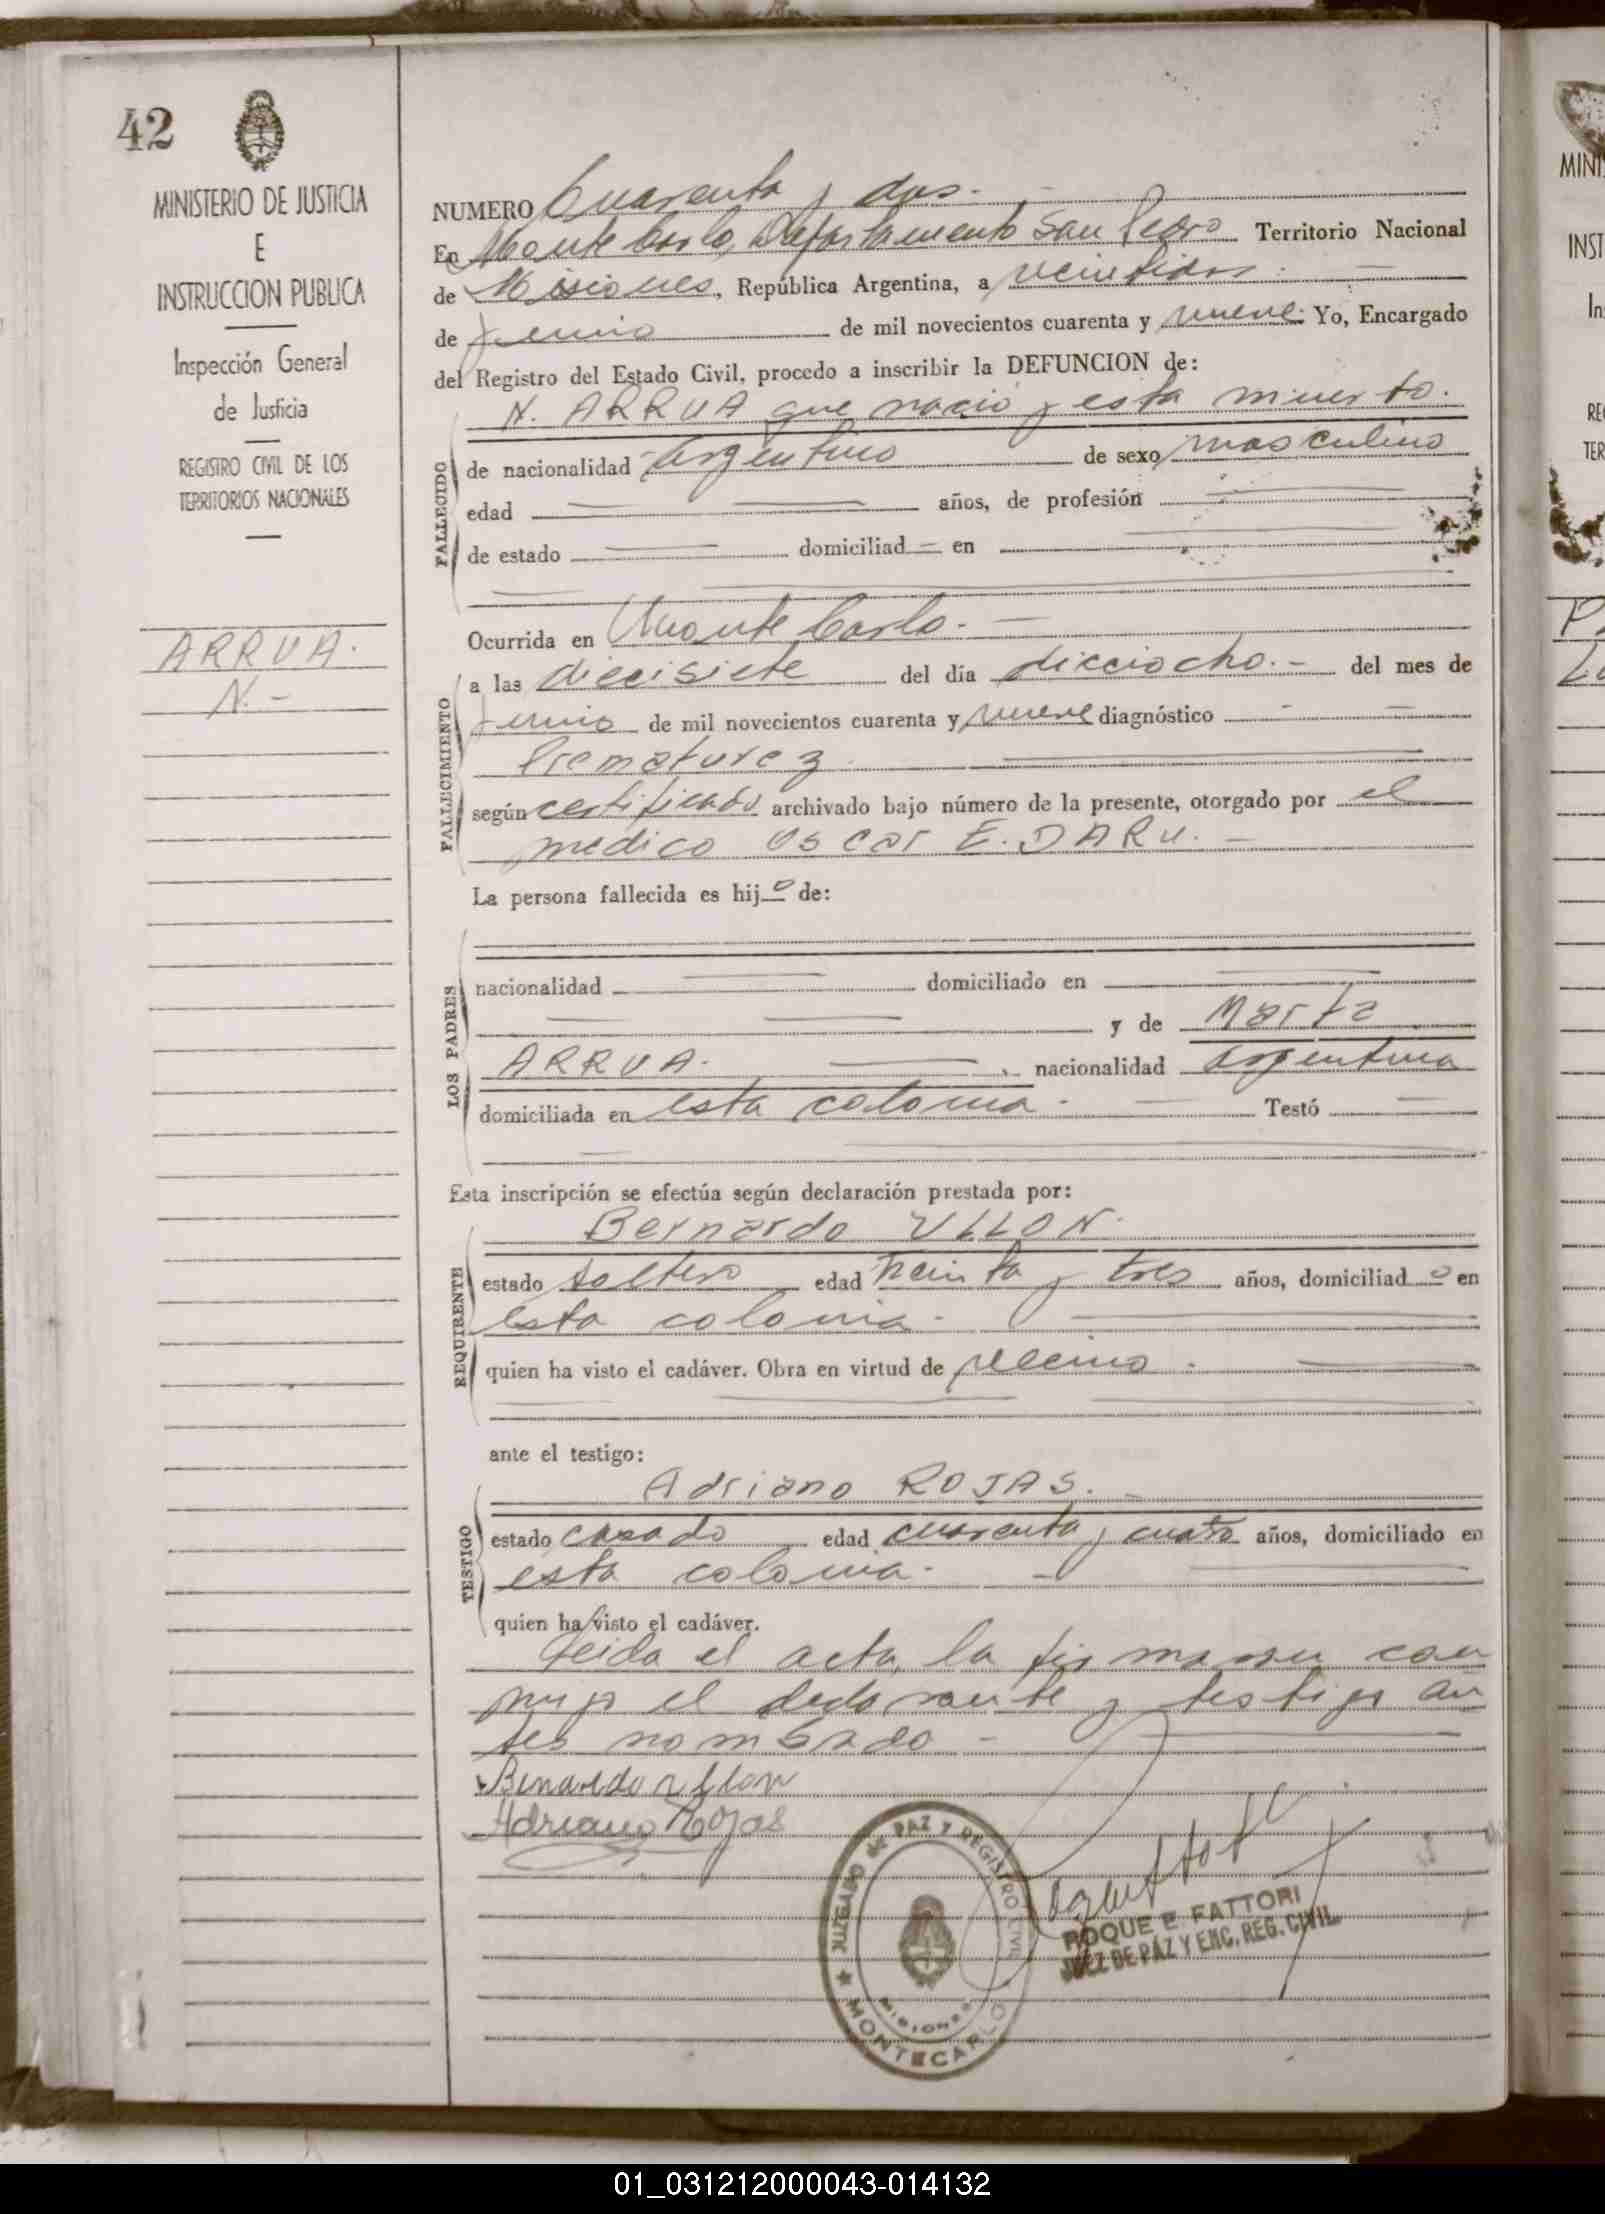 42
MINISTERIO DE JUSTICIA
E
INSTRUCCION PUBLICA
Inspección General
de Justicia
REGISTRO CIVIL DE LOS
TERRITORIOS NACIONALES
ARRUA.
N.-
NUMERO Cuarenta y dos.-
En Monte Carlo, Departamento San Pedro Territorio Nacional
de Misiones, República Argentina, a veintidos.
de Junio de mil novecientos cuarenta y nueve. Yo, Encargado
del Registro del Estado Civil, procedo a inscribir la DEFUNCION de:
N. ARRUA que nació y esta muerto.
FALLECIDO
de nacionalidad argentino de sexo masculino
edad años, de profesión
de estado domiciliad en
FALLECIMIENTO
Ocurrida en Monte Carlo.-
a las diecisiete del día dieciocho.- del mes de
Junio de mil novecientos cuarenta y nueve diagnóstico
Prematurez
según certificado archivado bajo número de la presente, otorgado por el
medico Oscar E. DARU.-
La persona fallecida es hijo de:
LOS PADRES
nacionalidad domiciliado en
y de Marta
ARRUA. nacionalidad argentina
domiciliada en esta colonia. Testó
Esta inscripción se efectúa según declaración prestada por:
REQUIRENTE
Bernardo ULLON.
estado soltero edad treinta y tres años, domiciliado en
esta colonia.
quien ha visto el cadáver. Obra en virtud de vecino.
ante el testigo:
TESTIGO
Adriano ROJAS.
estado casado edad cuarenta y cuatro años, domiciliado en
esta colonia.
quien ha visto el cadáver.
Leida el acta, la firmaron con
migo el declarante y testigo an
tes nombrado -
Bernardo Ullon
Adriano Rojas
JUZGADO de PAZ Y REGISTRO CIVIL
MISIONES
★ MONTECARLO
ROQUE E. FATTORI
JUEZ DE PAZ Y ENC. REG. CIVIL
01_031212000043-014132